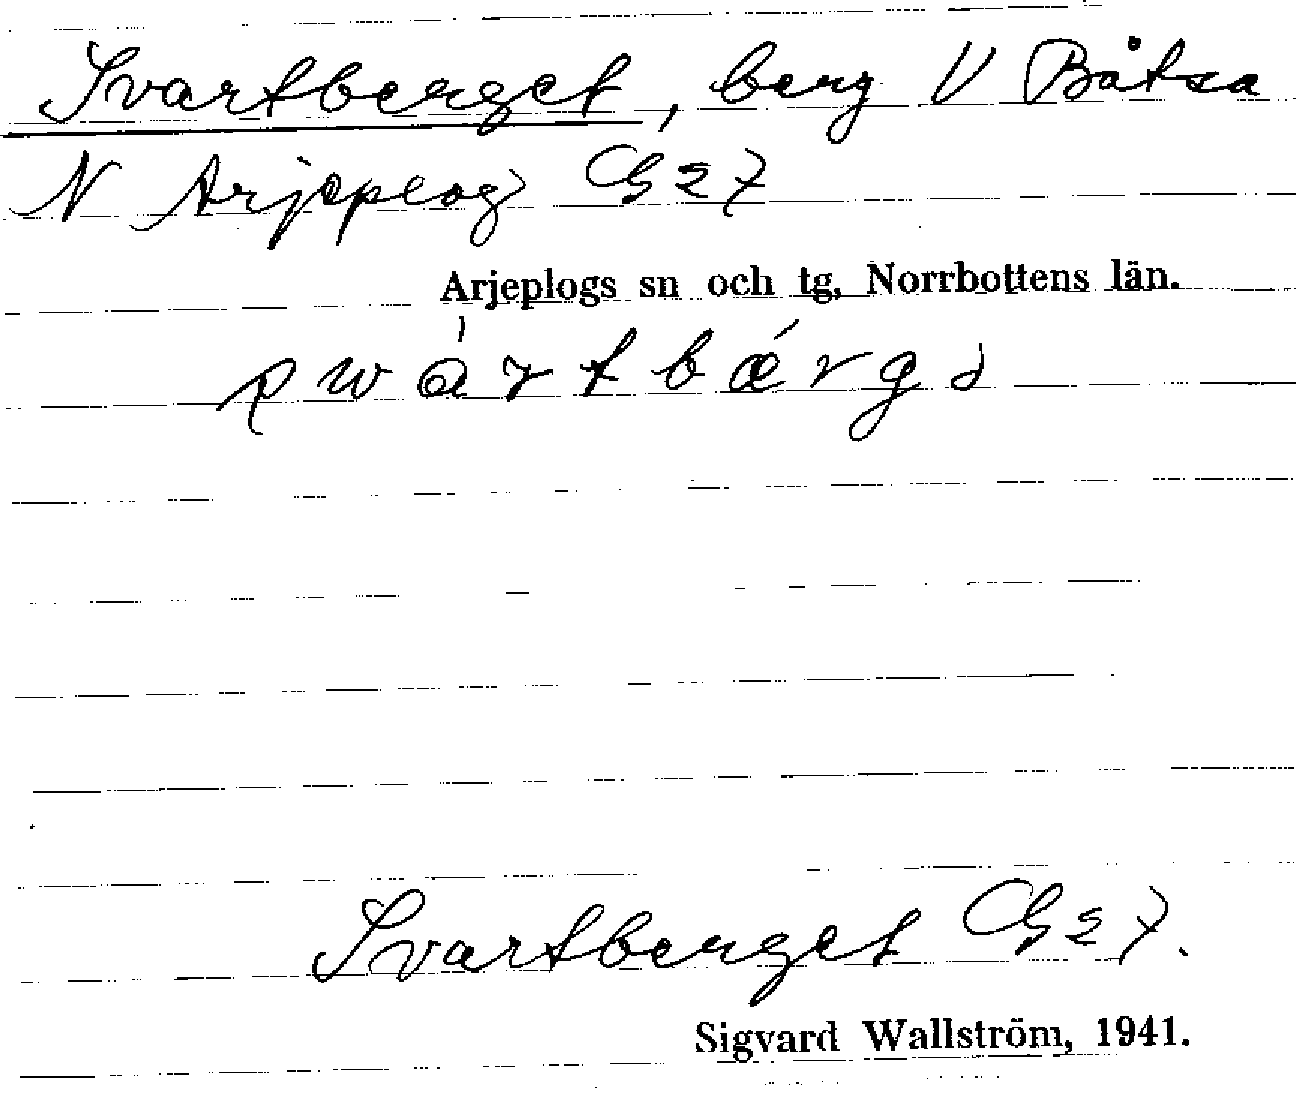 Svartberget, berg V Båtsa
N Arjeplog G 27
Arjeplogs sn och tg, Norrbottens län.
Svartberget G 27.
Sigvard Wallström, 1941.